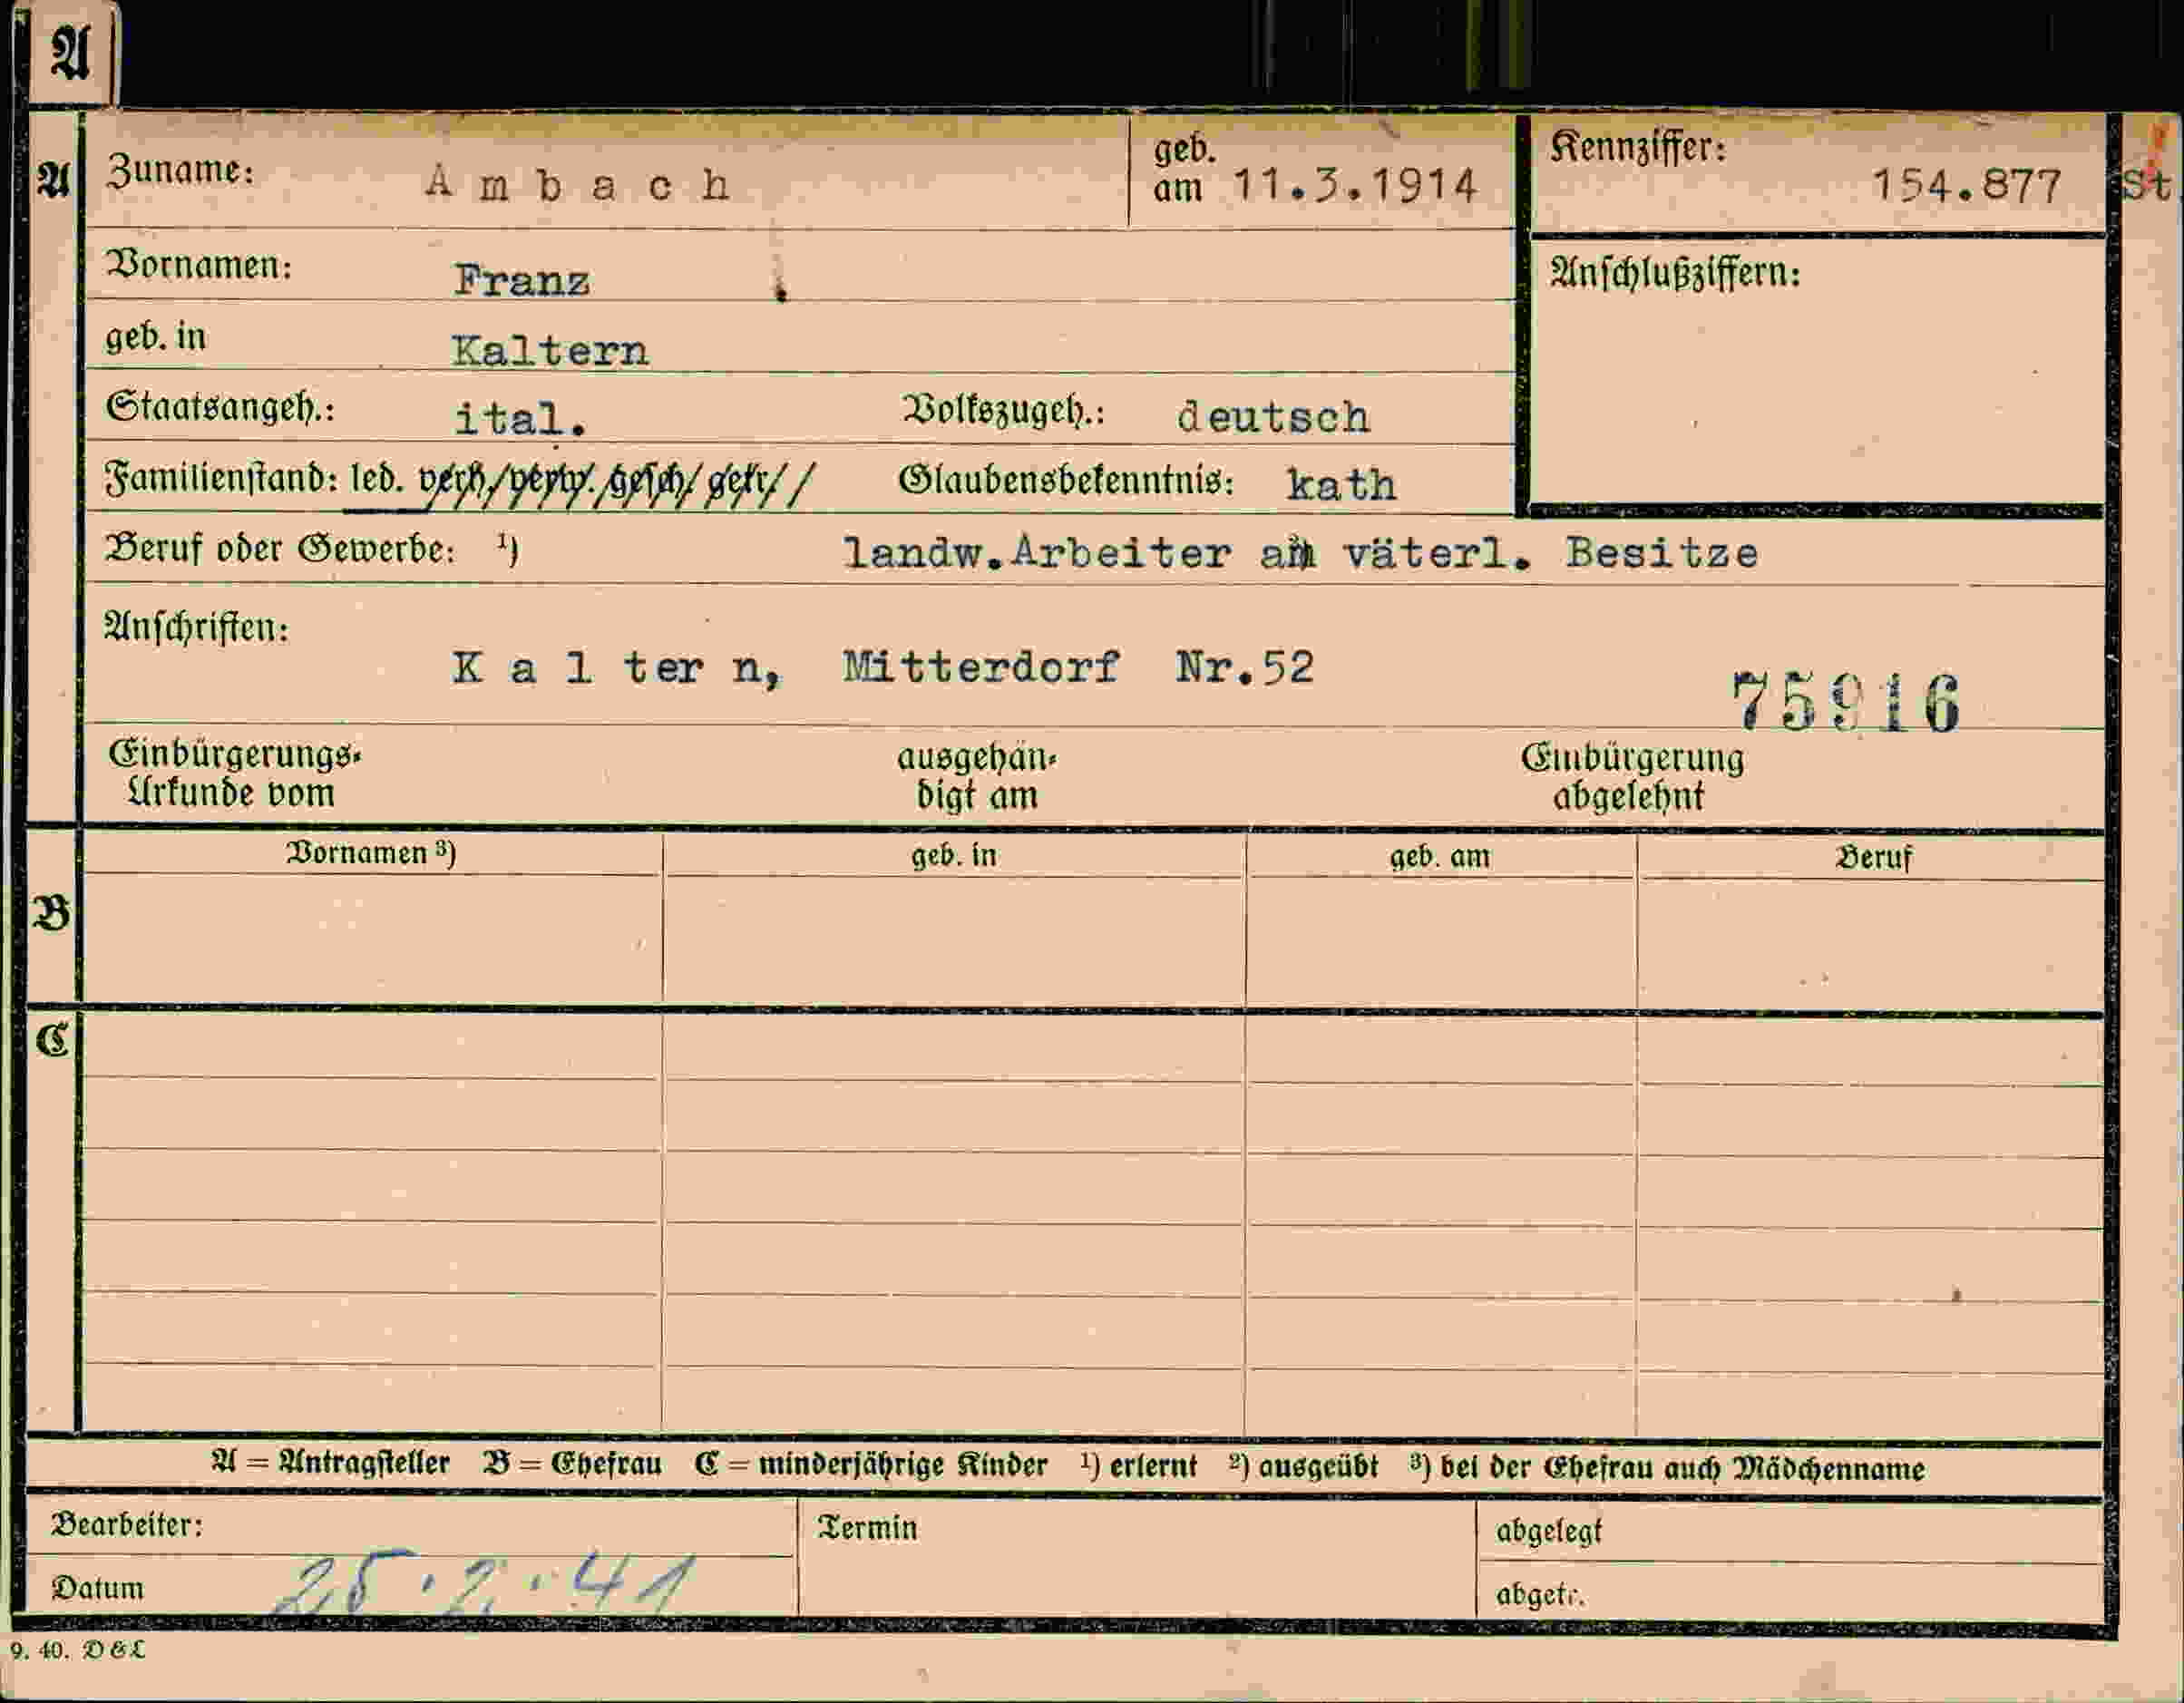 A
A
Zuname: Ambach
geb. am 11.3.1914
Kennziffer: 154.877
St
Vornamen: Franz
Anschlußziffern:
geb. in Kaltern
Staatsangeh.: ital. Volkszugeh.: deutsch
Familienstand: led. verh. verw. gesch. getr. Glaubensbekenntnis: kath
Beruf oder Gewerbe: ¹) landw.Arbeiter am väterl. Besitze
Anschriften:
Kaltern, Mitterdorf Nr.52
75916
Einbürgerungs-
Urkunde vom
ausgehän-
digt am
Einbürgerung
abgelehnt
Vornamen ³) geb. in geb. am Beruf
B
C
A = Antragsteller B = Ehefrau C = minderjährige Kinder ¹) erlernt ²) ausgeübt ³) bei der Ehefrau auch Mädchenname
Bearbeiter: Termin abgelegt
Datum 25.2.41 abgetr.
9. 40. D&L